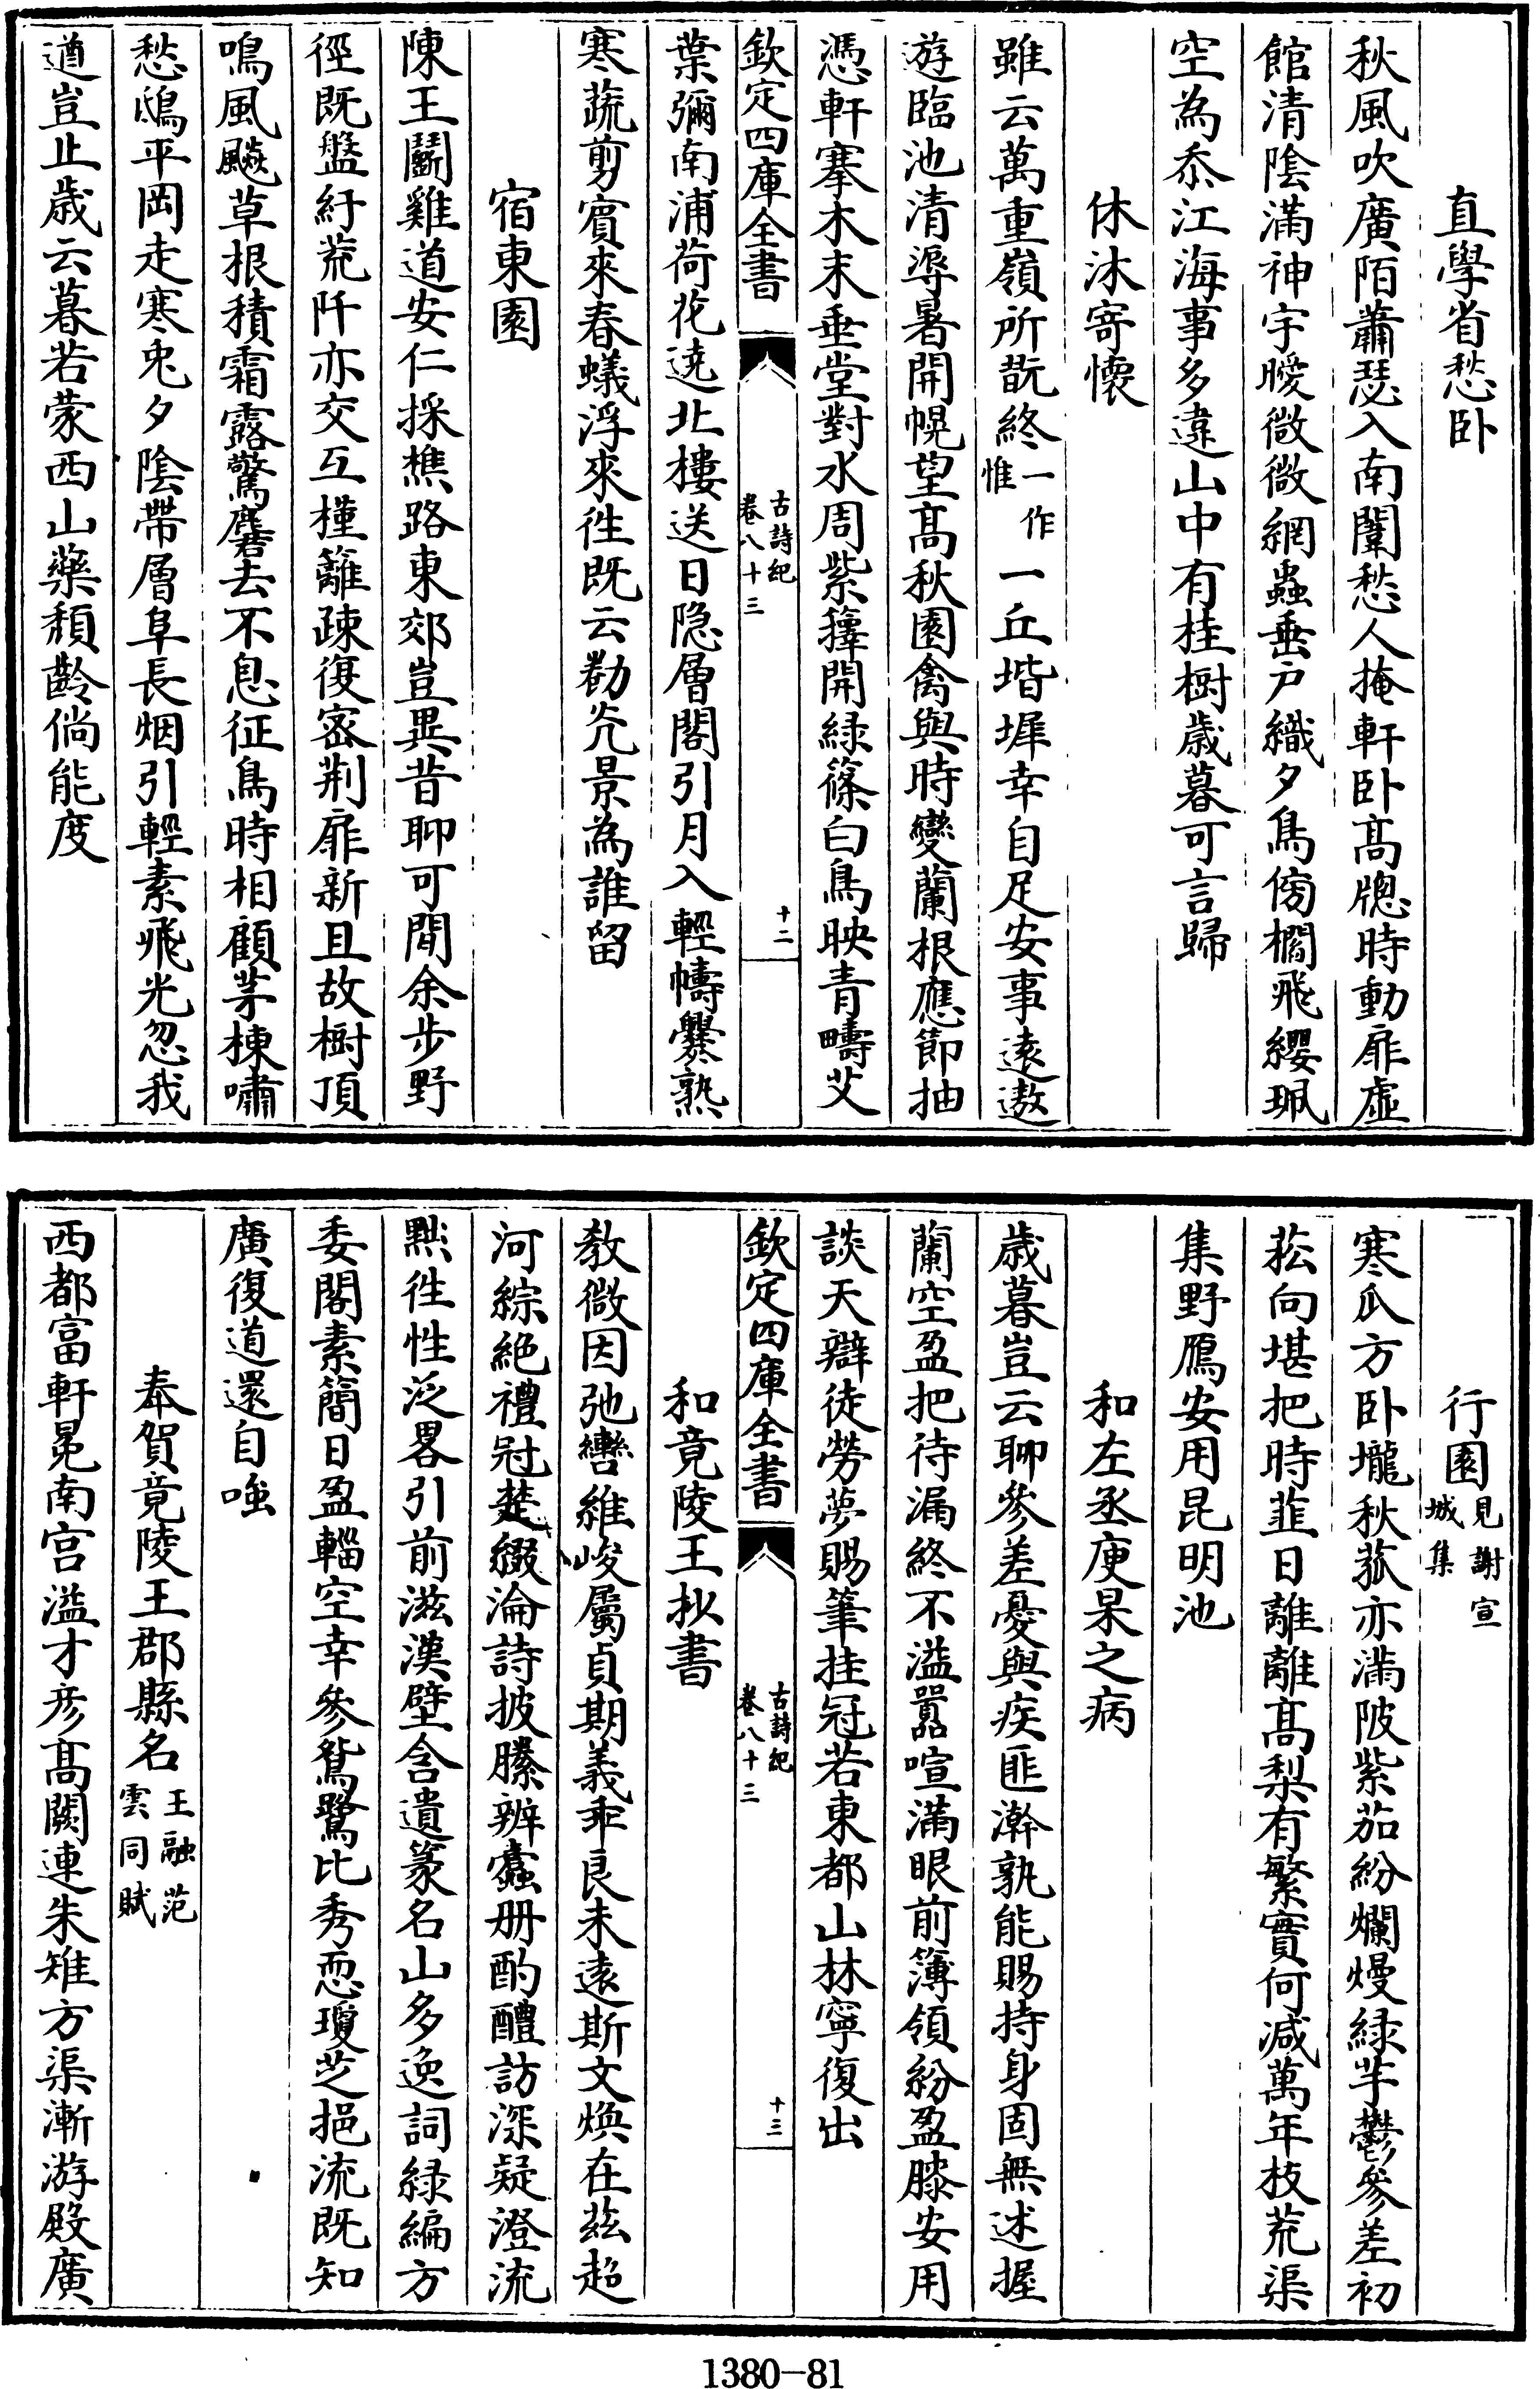 直學省愁卧
秋風吹廣陌蕭瑟入南闈愁人掩軒卧髙牎時動扉虚
館清隂滿神宇曖微微網蟲垂户織夕鳥傍櫩飛纓珮
空為忝江海事多違山中有桂樹歲暮可言歸
休沐寄懷
雖云萬重嶺所翫終一作惟一丘堦墀幸自足安事逺遨
遊臨池清溽暑開幌望髙秋園禽與時變蘭根應節抽
憑軒搴木末垂堂對水周紫籜開緑篠白鳥映青疇艾
欽定四庫全書
古詩紀
卷八十三
十二
葉彌南浦荷花遶北樓送日隐層閣引月入輕幬爨熟
寒蔬剪賓來春蟻浮來徃既云勌光景為誰留
宿東園
陳王鬬雞道安仁採樵路東郊豈異昔聊可閒余步野
徑既盤紆荒阡亦交互槿籬疎復宻荆扉新且故樹頂
鳴風飈草根積霜露驚麏去不息征鳥時相顧茅棟嘯
愁鴟平岡走寒兎夕隂帶層阜長烟引輕素飛光忽我
遒豈止歲云暮若蒙西山藥頽齡倘能度
行園見謝宣城集
寒瓜方卧壠秋菰亦滿陂紫茄紛爛熳緑芋鬱參差初
菘向堪把時韮日離離髙梨有繁實何减萬年枝荒渠
集野鴈安用昆明池
和左丞庾杲之病
歲暮豈云聊參差憂與疾匪澣孰能賜持身固無述握
蘭空盈把待漏終不溢嚚喧滿眼前簿領紛盈膝安用
談天辯徒勞夢賜筆挂冠若東都山林寧復出
欽定四庫全書
古詩紀
卷八十三
十三
和竟陵王抄書
教微因弛轡維峻屬貞期義乖良未逺斯文煥在兹超
河綜絶禮冠楚綴淪詩披縢辨蠹册酌醴訪深疑澄流
黙徃性泛畧引前滋漢壁含遺篆名山多逸詞緑編方
委閣素簡日盈輜空幸參鴛鷺比秀恧瓊芝挹流既知
廣復道還自嗤
奉賀竟陵王郡縣名王融范雲同賦
西都富軒冕南宫溢才彦髙闕連朱雉方渠漸游殿廣
1380-81